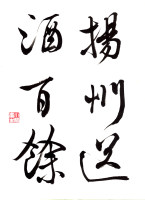 揚州送
酒百餘